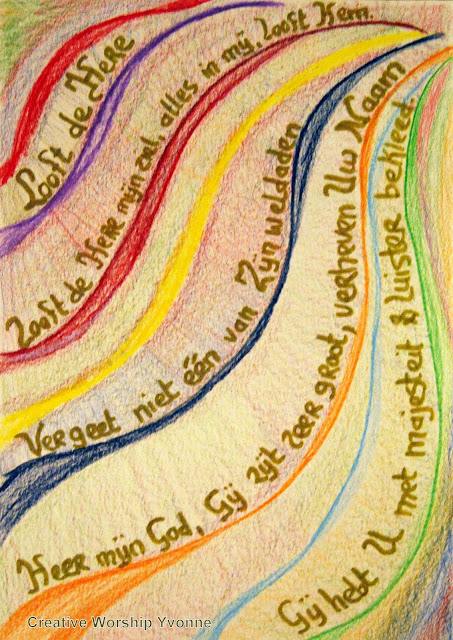 Looft de Here
Looft de Here mijn ziel, alles in mij, looft Hem.
Vergeet niet één van Zijn weldaden
Heer mijn God, Gij zijt zeer groot, verheven Uw Naam
Gij hebt U met majesteit & luister bekleed.
Creative Worship Yvonne